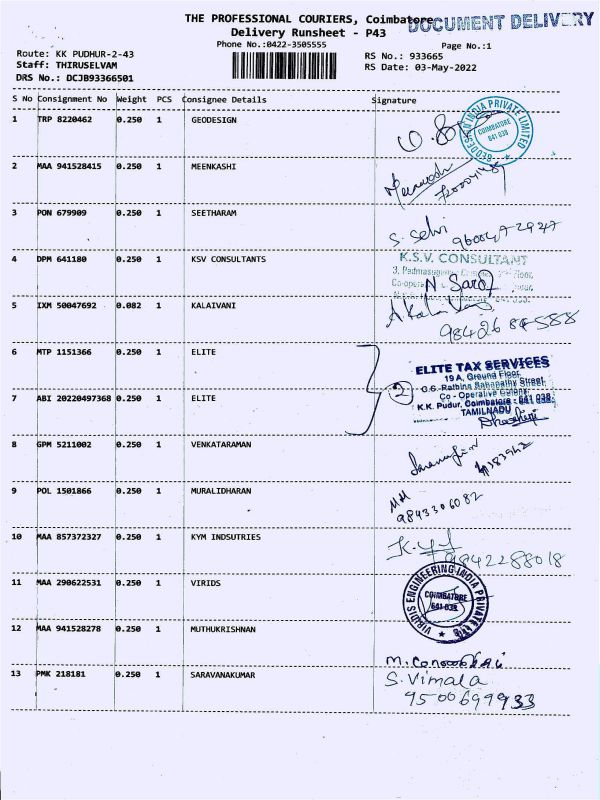 THE PROFESSIONAL COURIERS, Coimbatore
DOCUMENT DELIVERY
Delivery Runsheet - P43
Phone No.:0422-3505555
Page No.:1
Route: KK PUDHUR-2-43
RS No.: 933665
Staff: THIRUSELVAM
RS Date: 03-May-2022
DRS No.: DCJB93366501
S No Consignment No Weight PCS Consignee Details Signature
1 TRP 8220462 0.250 1 GEODESIGN
GEODESIGN INDIA PRIVATE LIMITED
COIMBATORE
641 038
2 MAA 941528415 0.250 1 MEENKASHI
3 PON 679909 0.250 1 SEETHARAM
S. Selvi
4 DPM 641180 0.250 1 KSV CONSULTANTS
K.S.V. CONSULTANT
5 IXM 50047692 0.082 1 KALAIVANI
6 MTP 1151366 0.250 1 ELITE
2
ELITE TAX SERVICES
19 A, Ground Floor,
G.G. Rathina Sabapathy Street,
Co - Operative Colony,
K.K. Pudur, Coimbatore - 641 038.
TAMILNADU
7 ABI 20220497368 0.250 1 ELITE
8 GPM 5211002 0.250 1 VENKATARAMAN
9 POL 1501866 0.250 1 MURALIDHARAN
9843306082
10 MAA 857372327 0.250 1 KYM INDSUTRIES
9842288018
11 MAA 290622531 0.250 1 VIRIDS
VIRDIS ENGINEERING INDIA PRIVATE LTD
COIMBATORE
641 038
12 MAA 941528278 0.250 1 MUTHUKRISHNAN
13 PMK 218181 0.250 1 SARAVANAKUMAR
S. Vimala
9500699933